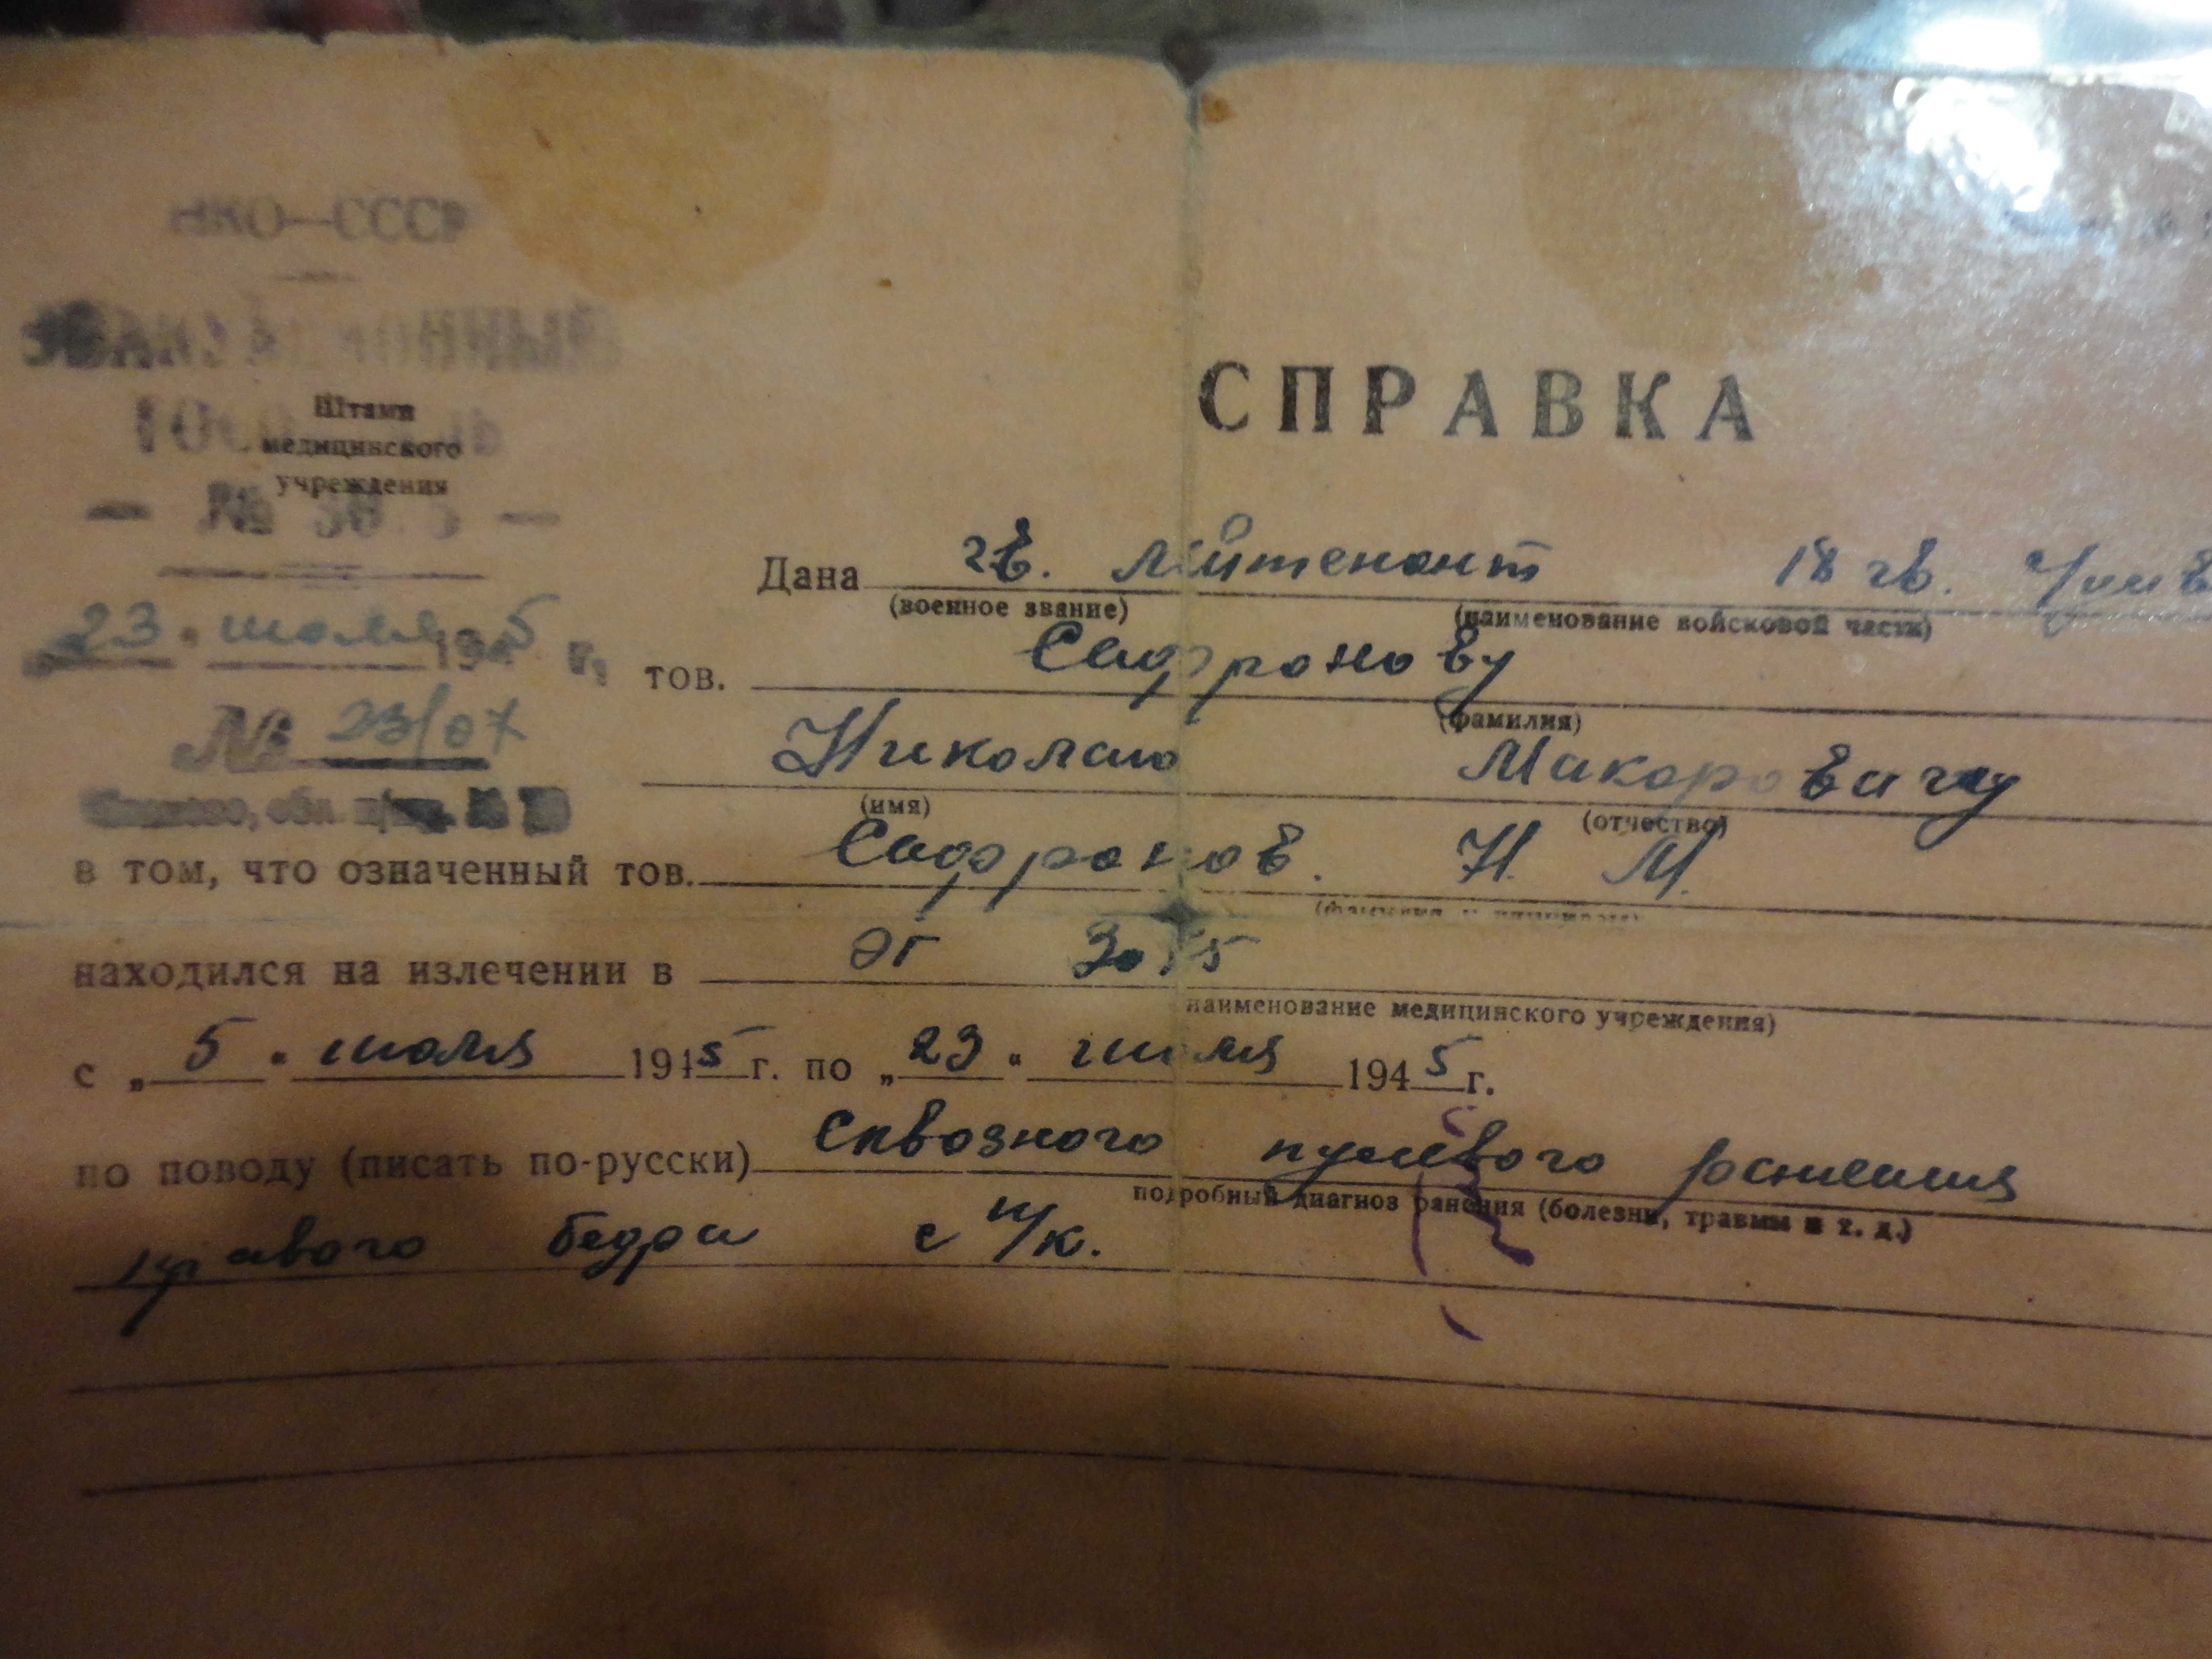 НКО—СССР
ЭВАКУАЦИОННЫЙ
ГОСПИТАЛЬ
Штамп
медицинского
учреждения
СПРАВКА
Дана гв. лейтенант 18 гв.
(военное звание) (наименование войсковой части)
23 июля 1945 г.
тов. Сафронову
(фамилия)
№ 23/07
Николаю Макаровичу
(имя) (отчество)
в том, что означенный тов. Сафронов. Н. М.
(фамилия и инициалы)
находился на излечении в ЭГ
наименование медицинского учреждения)
с „5" июля 1945 г. по „23" июля 1945 г.
по поводу (писать по-русски) Сквозного пулевого ранения
подробный диагноз ранения (болезни, травмы и т. д.)
правого бедра с п/к.